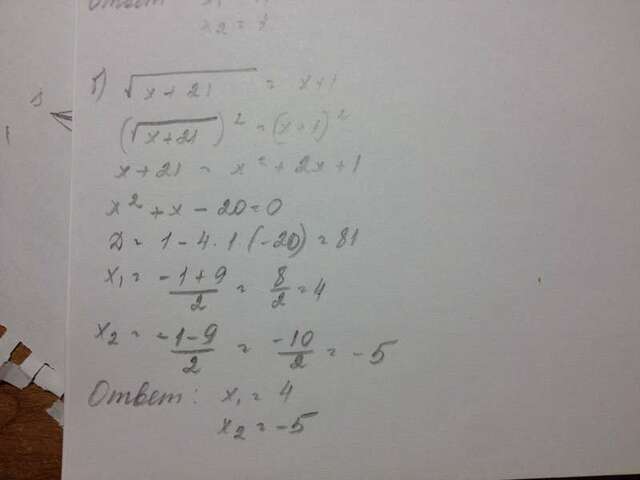 Ответ
x₂ =
б) √(x + 21) = x+1
(√(x+21))² = (x+1)²
x+21 = x² + 2x+1
x² + x - 20 = 0
D = 1 - 4 · 1 · (-20) = 81
x₁ = (-1+9)/2 = 8/2 = 4
x₂ = (-1-9)/2 = -10/2 = -5
Ответ: x₁ = 4
x₂ = -5